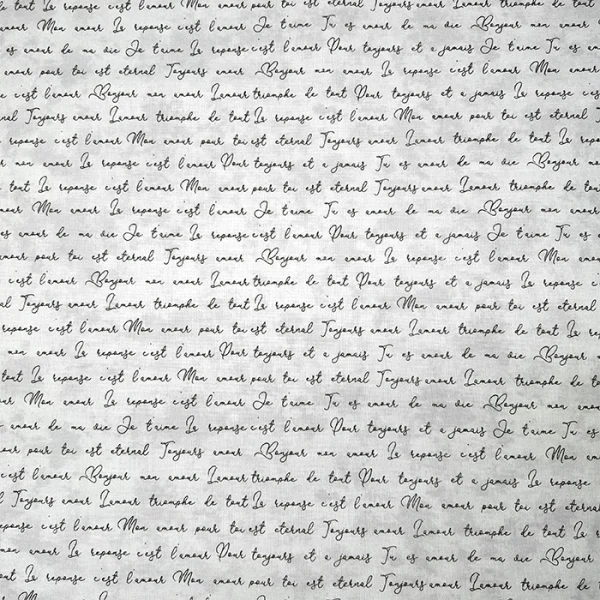 de tout La reponse c'est l'amour Mon amour pour toi est eternal Toujours amour L'amour triomphe de tout
amour Mon amour La reponse c'est l'amour Je t'aime Tu es amour de ma vie Bonjour mon amour
es amour de ma vie Je t'aime La reponse c'est l'amour Pour toujours et a jamais Je t'aime Tu es
amour pour toi est eternal Toujours amour Bonjour mon amour La reponse c'est l'amour Mon amour
c'est l'amour Bonjour mon amour L'amour triomphe de tout Pour toujours et a jamais La reponse c'est
Toujours amour L'amour triomphe de tout La reponse c'est l'amour Mon amour pour toi est eternal
reponse c'est l'amour Mon amour pour toi est eternal Toujours amour L'amour triomphe de tout La
mon amour La reponse c'est l'amour Pour toujours et a jamais Tu es amour de ma vie Bonjour
tout La reponse c'est l'amour Mon amour pour toi est eternal Toujours amour L'amour triomphe de tout
Mon amour La reponse c'est l'amour Je t'aime Tu es amour de ma vie Bonjour mon amour
es amour de ma vie Je t'aime La reponse c'est l'amour Pour toujours et a jamais Je t'aime Tu es
amour pour toi est eternal Toujours amour Bonjour mon amour La reponse c'est l'amour Mon
c'est l'amour Bonjour mon amour L'amour triomphe de tout Pour toujours et a jamais La reponse
Toujours amour L'amour triomphe de tout La reponse c'est l'amour Mon amour pour toi est eternal
reponse c'est l'amour Mon amour pour toi est eternal Toujours amour L'amour triomphe de tout La
mon amour La reponse c'est l'amour Pour toujours et a jamais Tu es amour de ma vie Bonjour
tout La reponse c'est l'amour Mon amour pour toi est eternal Toujours amour L'amour triomphe de
Mon amour La reponse c'est l'amour Je t'aime Tu es amour de ma vie Bonjour mon
amour de ma vie Je t'aime La reponse c'est l'amour Pour toujours et a jamais Je t'aime Tu es
pour toi est eternal Toujours amour Bonjour mon amour La reponse c'est l'amour Mon
c'est l'amour Bonjour mon amour L'amour triomphe de tout Pour toujours et a jamais La reponse
Toujours amour L'amour triomphe de tout La reponse c'est l'amour Mon amour pour toi est
reponse c'est l'amour Mon amour pour toi est eternal Toujours amour L'amour triomphe de tout
mon amour La reponse c'est l'amour Pour toujours et a jamais Tu es amour de ma vie Bonjour
La reponse c'est l'amour Mon amour pour toi est eternal Toujours amour L'amour triomphe de